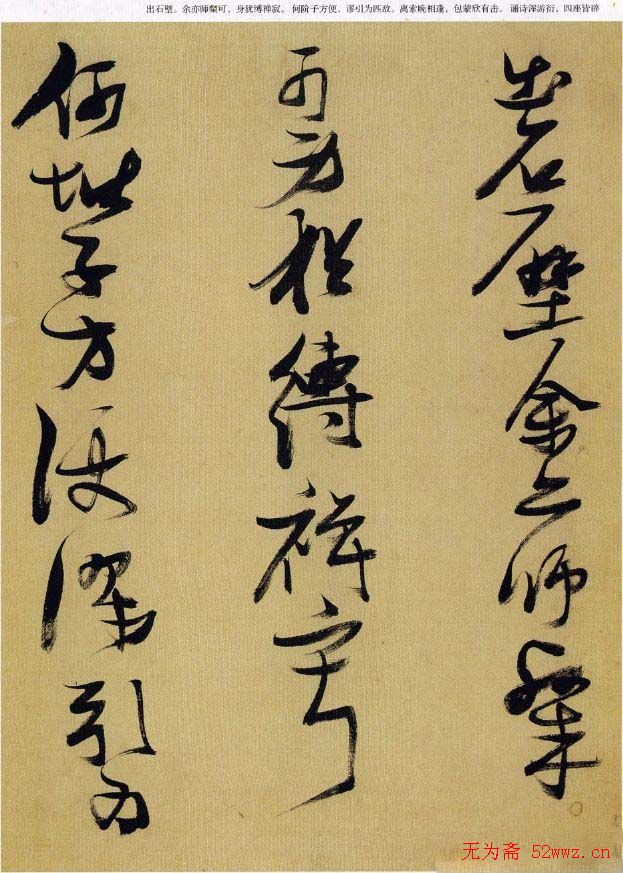 出石壁。余亦师粲可，身犹缚禅寂。何阶子方便，谬引为匹敌。离索晚相逢，包蒙欣有击。诵诗浑游衍，四座皆辟
出石壁余亦師粲
可身猶縛禪寂
何階子方便謬引為
无为斋 52wwz.cn